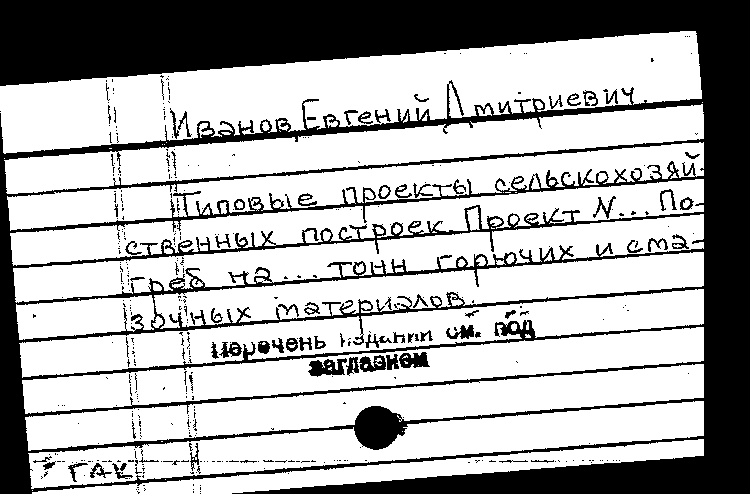 Иванов, Евгений Дмитриевич.
Типовые проекты сельскохозяй-
ственных построек. Проект N... По-
греб на... тонн горючих и сма-
зочных материалов.
Перечень издании см. под
заглавием
ГАК